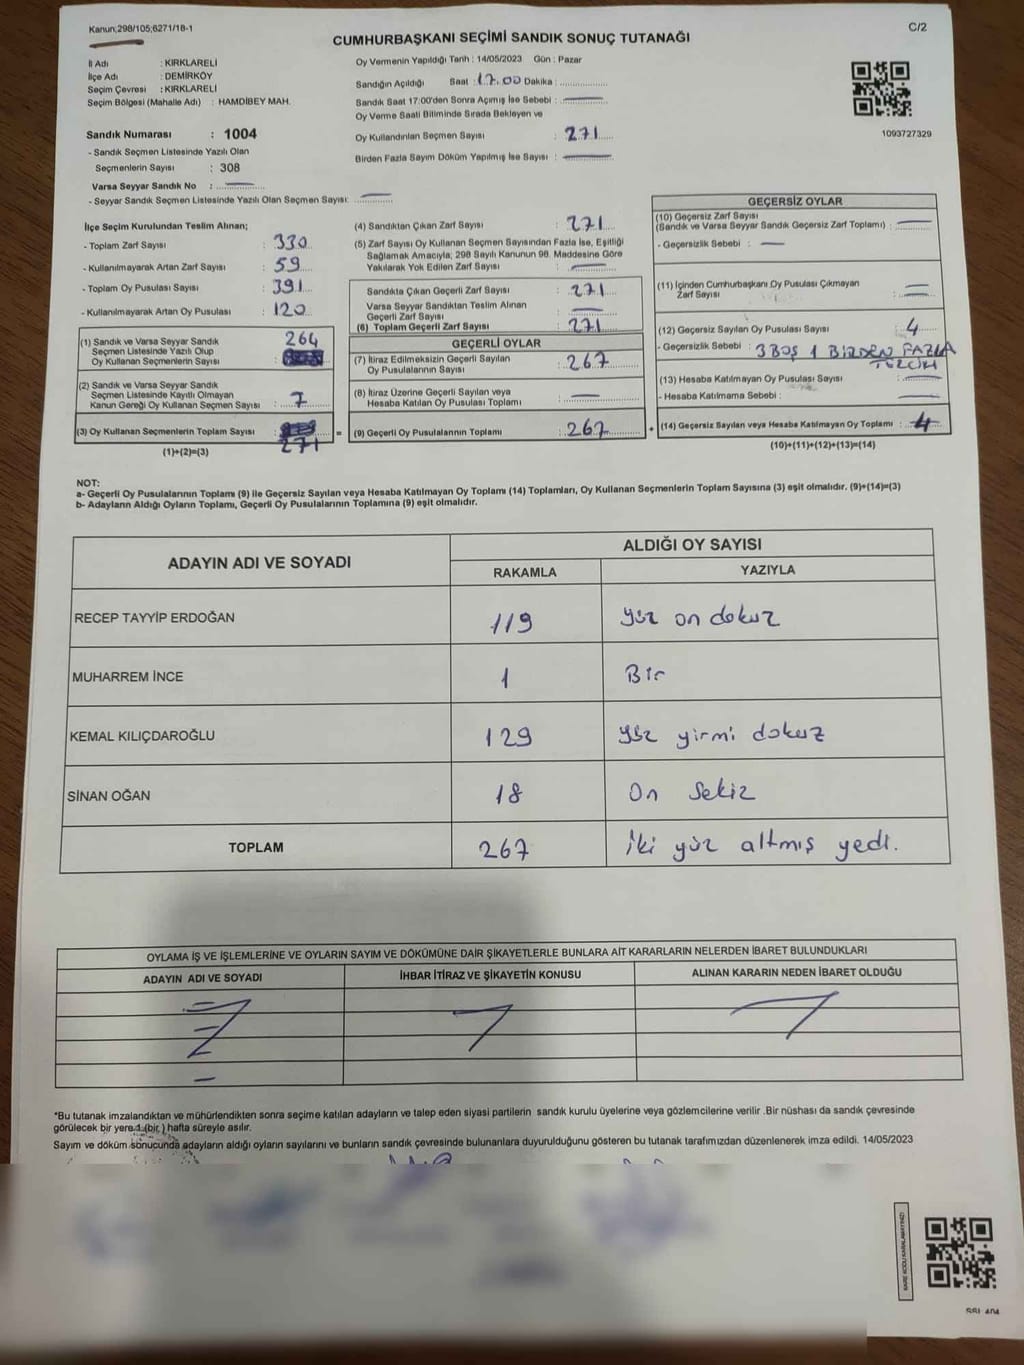 Kanun;298/105;6271/18-1
C/2
CUMHURBAŞKANI SEÇİMİ SANDIK SONUÇ TUTANAĞI
İl Adı : KIRKLARELİ
İlçe Adı : DEMİRKÖY
Seçim Çevresi : KIRKLARELİ
Seçim Bölgesi (Mahalle Adı) : HAMDİBEY MAH.
Sandık Numarası : 1004
- Sandık Seçmen Listesinde Yazılı Olan
Seçmenlerin Sayısı : 308
Varsa Seyyar Sandık No :
- Seyyar Sandık Seçmen Listesinde Yazılı Olan Seçmen Sayısı:
Oy Vermenin Yapıldığı Tarih : 14/05/2023 Gün : Pazar
Sandığın Açıldığı Saat : 17.00 Dakika :
Sandık Saat 17:00'den Sonra Açımış İse Sebebi :
Oy Verme Saati Bitiminde Sırada Bekleyen ve
Oy Kullandırılan Seçmen Sayısı : 271
Birden Fazla Sayım Döküm Yapılmış İse Sayısı :
1093727329
İlçe Seçim Kurulundan Teslim Alınan;
- Toplam Zarf Sayısı : 330
- Kullanılmayarak Artan Zarf Sayısı : 59
- Toplam Oy Pusulası Sayısı : 391
- Kullanılmayarak Artan Oy Pusulası : 120
(1) Sandık ve Varsa Seyyar Sandık
Seçmen Listesinde Yazılı Olup
Oy Kullanan Seçmenlerin Sayısı : 264
(2) Sandık ve Varsa Seyyar Sandık
Seçmen Listesinde Kayıtlı Olmayan
Kanun Gereği Oy Kullanan Seçmen Sayısı : 7
(3) Oy Kullanan Seçmenlerin Toplam Sayısı : 271
(1)+(2)=(3)
=
(4) Sandıktan Çıkan Zarf Sayısı : 271
(5) Zarf Sayısı Oy Kullanan Seçmen Sayısından Fazla İse, Eşitliği
Sağlamak Amacıyla, 298 Sayılı Kanunun 98. Maddesine Göre
Yakılarak Yok Edilen Zarf Sayısı :
Sandıkta Çıkan Geçerli Zarf Sayısı : 271
Varsa Seyyar Sandıktan Teslim Alınan
Geçerli Zarf Sayısı :
(6) Toplam Geçerli Zarf Sayısı : 271
GEÇERLİ OYLAR
(7) İtiraz Edilmeksizin Geçerli Sayılan
Oy Pusulalarının Sayısı : 267
(8) İtiraz Üzerine Geçerli Sayılan veya
Hesaba Katılan Oy Pusulası Toplamı :
(9) Geçerli Oy Pusulalarının Toplamı : 267
+
GEÇERSİZ OYLAR
(10) Geçersiz Zarf Sayısı
(Sandık ve Varsa Seyyar Sandık Geçersiz Zarf Toplamı) :
- Geçersizlik Sebebi :
(11) İçinden Cumhurbaşkanı Oy Pusulası Çıkmayan
Zarf Sayısı :
(12) Geçersiz Sayılan Oy Pusulası Sayısı : 4
- Geçersizlik Sebebi : 3 BOŞ 1 BİRDEN FAZLA
(13) Hesaba Katılmayan Oy Pusulası Sayısı :
- Hesaba Katılmama Sebebi :
(14) Geçersiz Sayılan veya Hesaba Katılmayan Oy Toplamı : 4
(10)+(11)+(12)+(13)=(14)
NOT:
a- Geçerli Oy Pusulalarının Toplamı (9) ile Geçersiz Sayılan veya Hesaba Katılmayan Oy Toplamı (14) Toplamları, Oy Kullanan Seçmenlerin Toplam Sayısına (3) eşit olmalıdır. (9)+(14)=(3)
b- Adayların Aldığı Oyların Toplamı, Geçerli Oy Pusulalarının Toplamına (9) eşit olmalıdır.
ADAYIN ADI VE SOYADI
ALDIĞI OY SAYISI
RAKAMLA YAZIYLA
RECEP TAYYİP ERDOĞAN 119 yüz on dokuz
MUHARREM İNCE 1 Bir
KEMAL KILIÇDAROĞLU 129 yüz yirmi dokuz
SİNAN OĞAN 18 On Sekiz
TOPLAM 267 İki yüz altmış yedi.
OYLAMA İŞ VE İŞLEMLERİNE VE OYLARIN SAYIM VE DÖKÜMÜNE DAİR ŞİKAYETLERLE BUNLARA AİT KARARLARIN NELERDEN İBARET BULUNDUKLARI
ADAYIN ADI VE SOYADI İHBAR İTİRAZ VE ŞİKAYETİN KONUSU ALINAN KARARIN NEDEN İBARET OLDUĞU
*Bu tutanak imzalandıktan ve mühürlendikten sonra seçime katılan adayların ve talep eden siyasi partilerin sandık kurulu üyelerine veya gözlemcilerine verilir .Bir nüshası da sandık çevresinde
görülecek bir yere 1 (bir ) hafta süreyle asılır.
Sayım ve döküm sonucunda adayların aldığı oyların sayılarını ve bunların sandık çevresinde bulunanlara duyurulduğunu gösteren bu tutanak tarafımızdan düzenlenerek imza edildi. 14/05/2023
KARE KODU KARALAMAYINIZ!